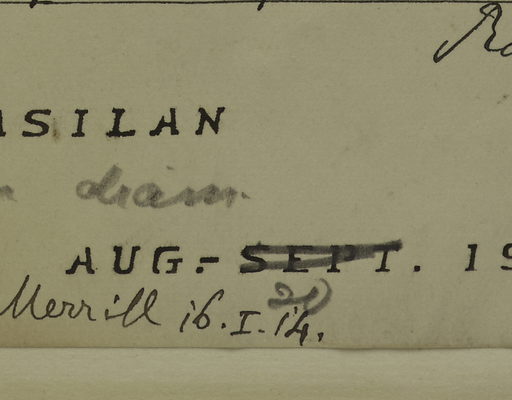 ASILAN
diam.
AUG.- SEPT. 19
Merrill 16.I.14.